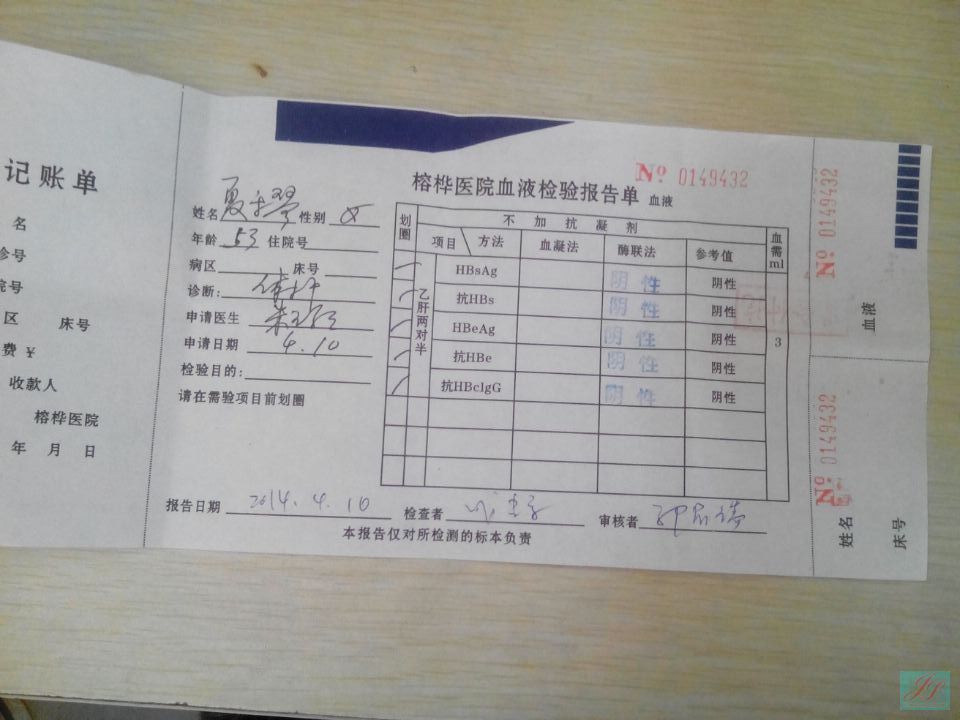 记账单
名
诊号
院号
区 床号
费 ¥
收款人
榕桦医院
年 月 日
榕桦医院血液检验报告单 血液
Nº 0149432
姓名 夏 性别 女
年龄 53 住院号
病区 床号
诊断:
申请医生
申请日期 4.10
检验目的:
请在需验项目前划圈
划圈 不加抗凝剂 血需ml
项目 方法 血凝法 酶联法 参考值
乙肝两对半
HBsAg 阴性 阴性
抗HBs 阴性 阴性
HBeAg 阴性 阴性
抗HBe 阴性 阴性
抗HBcIgG 阴性 阴性
3
报告日期 2014.4.10 检查者 审核者
本报告仅对所检测的标本负责
Nº 0149432
血液
Nº 0149432
姓名
床号